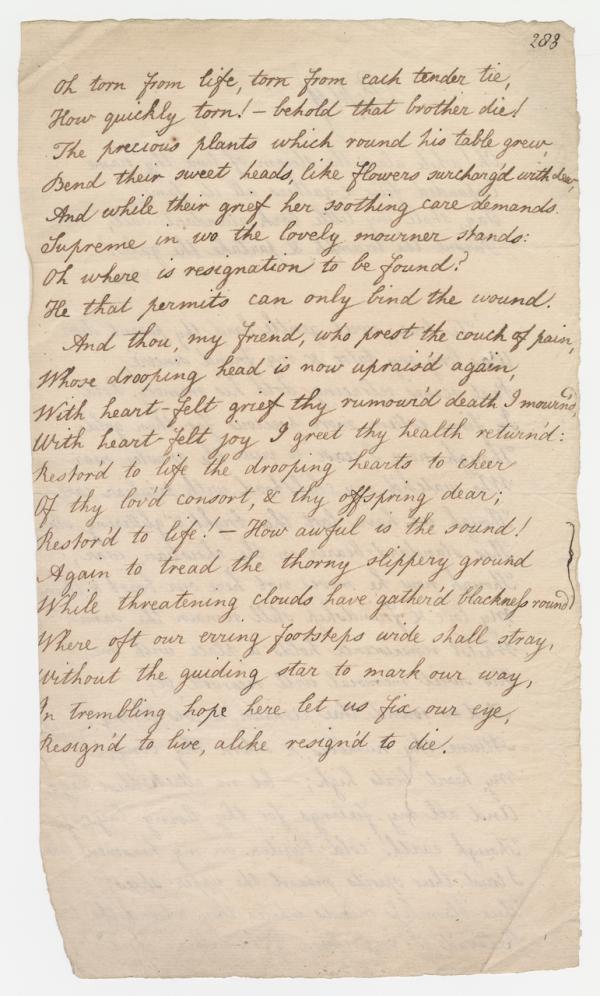 283
Oh torn from life, torn from each tender tie,
How quickly torn! – behold that brother die!
The precious plants which round his table grew,
Bend their sweet heads, like flowers surcharg'd with dew,
And while their grief her soothing care demands.
Supreme in wo the lovely mourner stands:
Oh where is resignation to be found?
He that permits can only bind the wound.
And thou, my friend, who prest the couch of pain,
Whose drooping head is now uprais'd again,
With heart-felt grief thy rumour'd death I mourn'd,
With heart-felt joy I greet thy health return'd:
Restor'd to life the drooping hearts to cheer
Of thy lov'd consort, & thy offspring dear;
Restor'd to life! – How awful is the sound!
Again to tread the thorny slippery ground
While threatening clouds have gather'd blackness round
Where oft our erring footsteps wide shall stray,
Without the guiding star to mark our way,
In trembling hope here let us fix our eye,
Resign'd to live, alike resign'd to die.